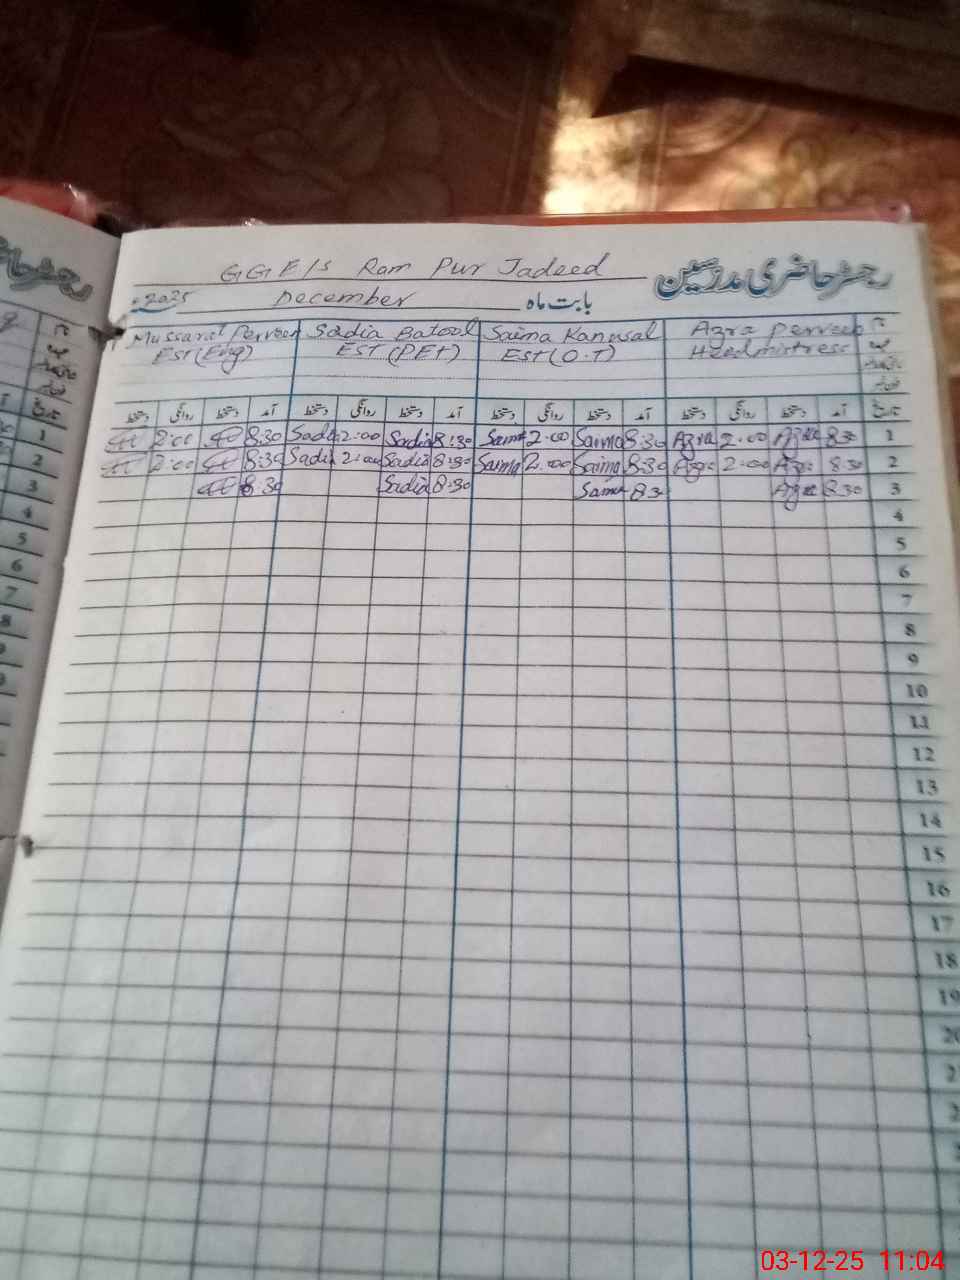 GGE/S Ram Pur Jadeed رجسٹر حاضری مدرسین
2025 December بابت ماہ
Mussarat Perveen Sadia Batool Saima Kanwal Azra Perveen نام
EST (Eng) EST (PET) EST (O.T) Headmistress
دستخط روانگی دستخط آمد دستخط روانگی دستخط آمد دستخط روانگی دستخط آمد دستخط روانگی دستخط آمد تاریخ
2:00 8:30 Sadia 2:00 Sadia 8:30 Saima 2:00 Saima 8:30 Azra 2:00 Azra 8:30 1
2:00 8:30 Sadia 2:00 Sadia 8:30 Saima 2:00 Saima 8:30 Azra 2:00 Azra 8:30 2
8:30 Sadia 8:30 Saima 8:3 Azra 8:30 3
4
5
6
7
8
9
10
11
12
13
14
15
16
17
18
19
5
6
7
8
03-12-25 11:04